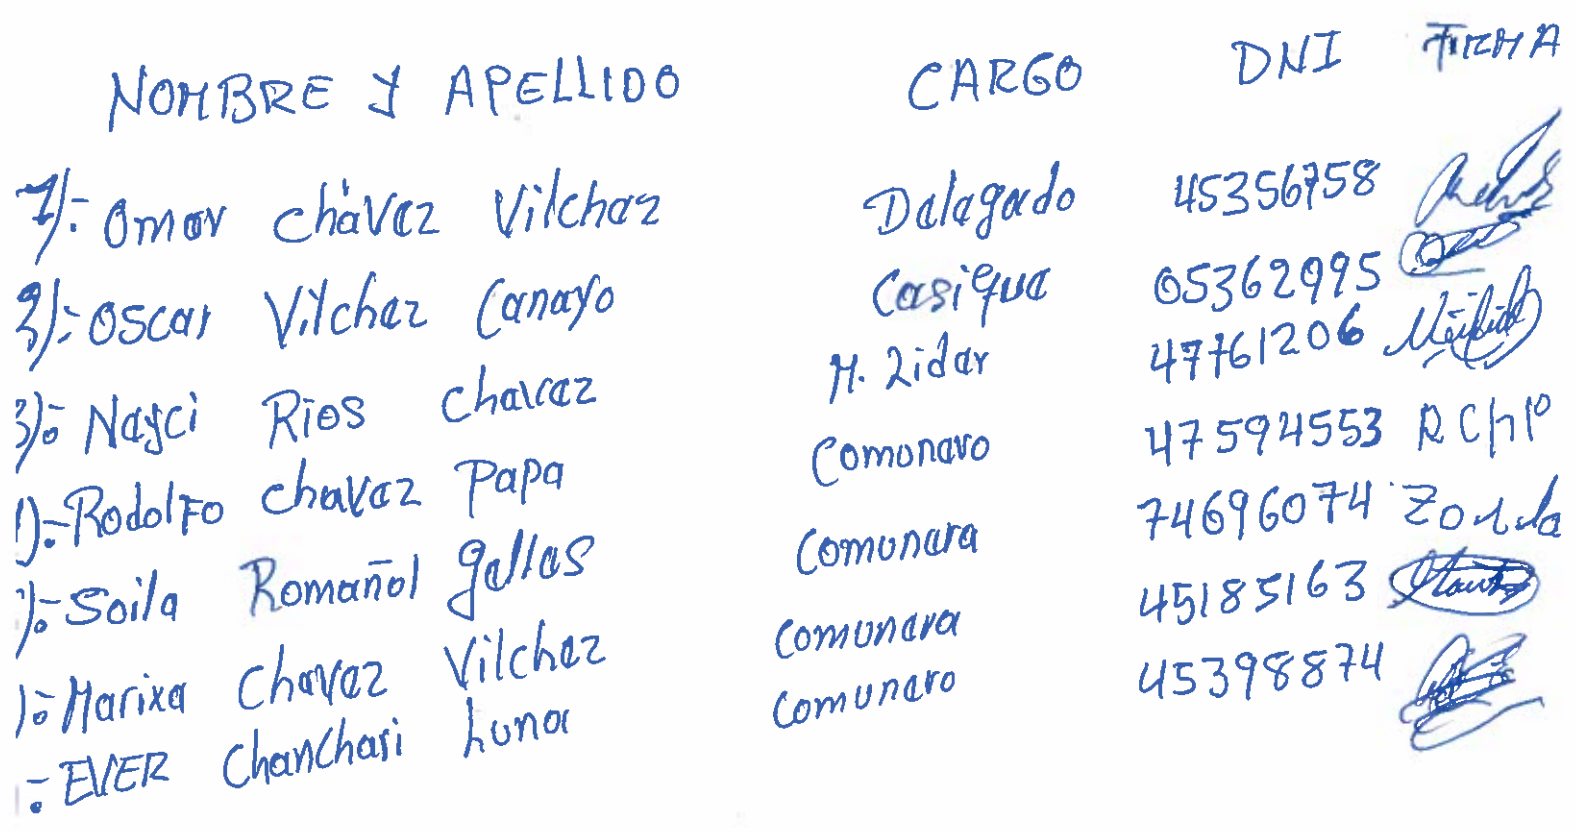 NOMBRE Y APELLIDO CARGO DNI FIRMA
1/:- Omar Chávez Vilchez Delegado 45356758
2/:- Oscar Vilchez Canayo Casique 05362995
3/:- Nayci Rios Chavez M. Lider 47761206
):- Rodolfo Chavez Papa Comunero 47594553 RChP
):- Soila Romañol gallas Comunera 74696074 Zoila
):- Marixa Chavez Vilchez Comunera 45185163
:- EVER Chanchari Luna Comunero 45398874